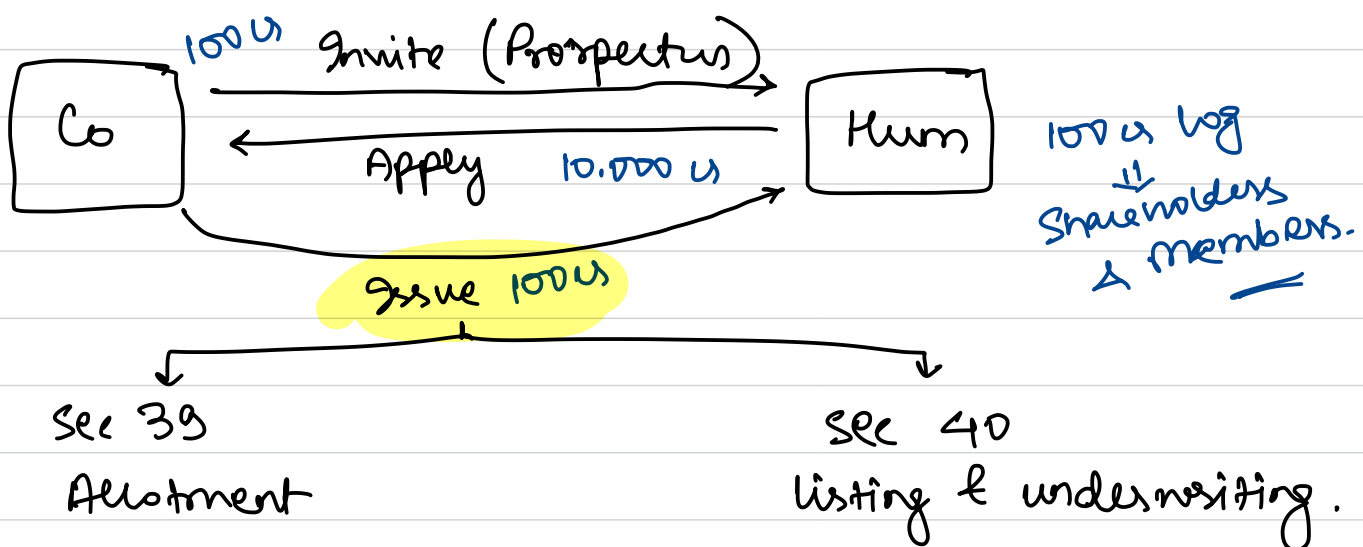 100 cr Invite (Prospectus)
Co
Hum
Apply 10.000 cr
100 cr log
Shareholders
& members.
Issue 100 cr
Sec 39
Sec 40
Allotment
Listing & underwriting.